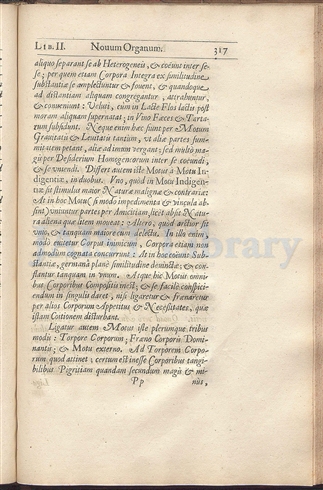 LIB. II. Novum Organum. 317
aliquo separant se ab Heterogeneis, & coëunt inter se-
se; per quem etiam Corpora Integra ex similitudine
substantiæ se amplectuntur & fouent, & quandoque
ad distantiam aliquam congregantur, attrahuntur,
& conueniunt: Veluti, cùm in Lacte Flos lactis post
moram aliquam supernatat; in Vino Fæces & Tarta-
rum subsidunt. Neque enim hæc fiunt per Motum
Grauitatis & Leuitatis tantùm, vt aliæ partes sum-
mitatem petant, aliæ ad imum vergant; sed multò ma-
gis per Desiderium Homogeneorum inter se coeundi,
& se vniendi. Differt autem iste Motus à Motu In-
digentiæ, in duobus. Vno, quòd in Motu Indigen-
tiæ sit stimulus maior Naturæ malignæ & contrariæ:
At in hoc Motu (si modò impedimenta & vincula ab-
sint) vniuntur partes per Amicitiam, licèt absit Natu-
ra aliena quæ litem moueat: Altero, quòd arctiùs sit
vnio, & tanquam maiore cum delectu. In illo enim,
modò euitetur Corpus inimicum, Corpora etiam non
admodùm cognata concurrunt: At in hoc coëunt Sub-
stantiæ, germanâ planè similitudine deuinctæ; & con-
flantur tanquam in vnum. Atque hic Motus omni-
bus Corporibus Compositis inest; & se facilè conspici-
endum in singulis daret, nisi ligaretur & frænaretur
per alios Corporum Appetitus & Necessitates, quæ
istam Coitionem disturbant.
Ligatur autem Motus iste plerumque tribus
modis: Torpore Corporum; Fræno Corporis Domi-
nantis; & Motu externo. Ad Torporem Corpo-
rum quod attinet; certum est inesse Corporibus tangi-
bilibus Pigritiam quandam secundum magis & mi-
P p nus,
Library